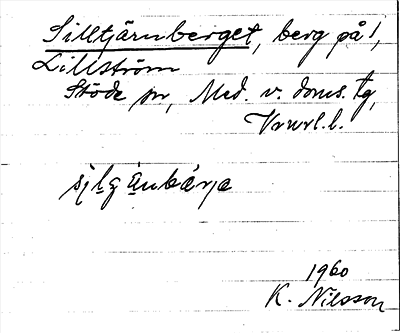 Silltjärnberget, berg på!,
Lillström
Stöde sn, Med. v. doms. tg,
Vnvrl. l.
1960
K. Nilsson